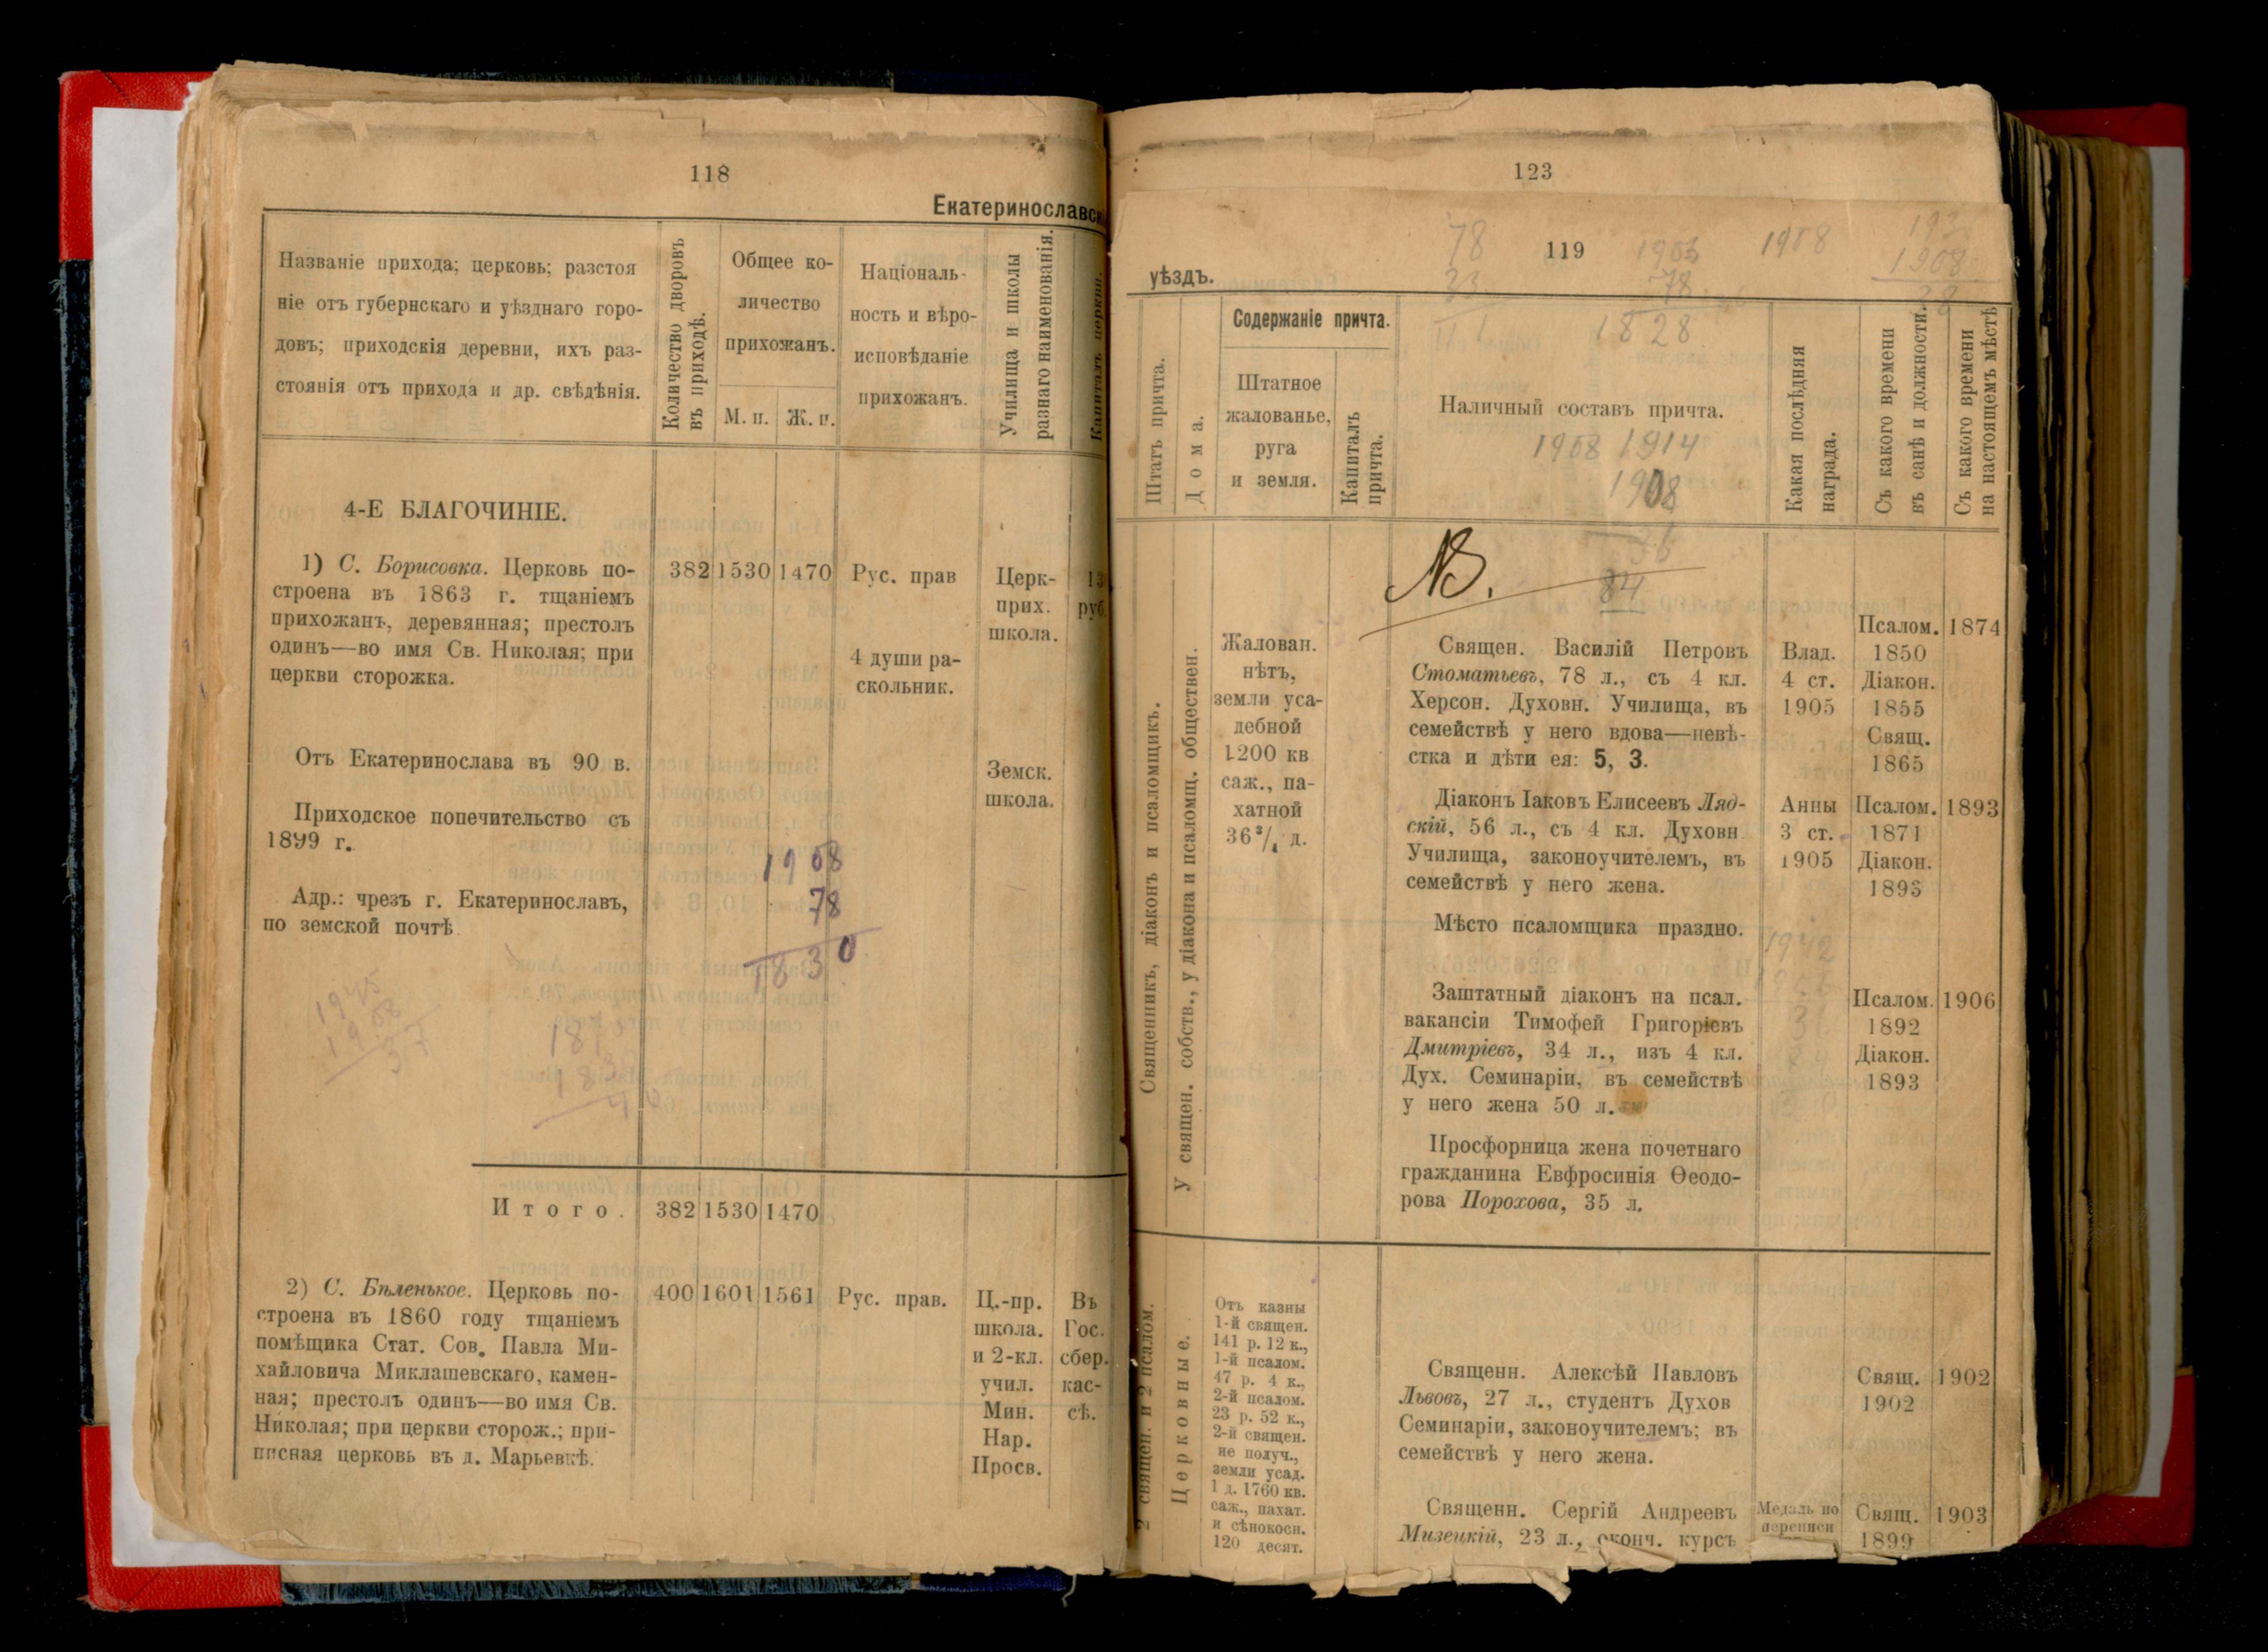 118
Екатеринославск
Названіе прихода; церковь; разстоя
ніе отъ губернскаго и уѣзднаго горо-
довъ; приходскія деревни, ихъ раз-
стоянія отъ прихода и др. свѣдѣнія.
Количество дворовъ
въ приходѣ.
Общее ко-
личество
прихожанъ.
М. п.
Ж. п.
Націоналъ-
ность и вѣро-
исповѣданіе
прихожанъ.
Училища и школы
разнаго наименованія.
Капиталъ церкви.
4-Е БЛАГОЧИНІЕ.
1) С. Борисовка. Церковь по-
строена въ 1863 г. тщаніемъ
прихожанъ, деревянная; престолъ
одинъ—во имя Св. Николая; при
церкви сторожка.
382 1530 1470
Рус. прав
4 души ра-
скольник.
Церк-
прих.
школа.
13
руб.
Отъ Екатеринослава въ 90 в.
Земск.
школа.
Приходское попечительство съ
1899 г.
Адр.: чрезъ г. Екатеринославъ,
по земской почтѣ
1908
78
1830
1945
1908
37
Итого. 382 1530 1470
2) С. Бѣленькое. Церковь по-
строена въ 1860 году тщаніемъ
помѣщика Стат. Сов. Павла Ми-
хайловича Миклашевскаго, камен-
ная; престолъ одинъ—во имя Св.
Николая; при церкви сторож.; при-
писная церковь въ д. Марьевкѣ.
400 1601 1561
Рус. прав.
Ц.-пр.
школа.
и 2-кл.
учил.
Мин.
Нар.
Просв.
Въ
Гос.
сбер.
кас-
сѣ.
123
119
78
1908
1908
78
1828
уѣздъ.
Штатъ причта.
Дома.
Содержаніе причта.
Штатное
жалованье,
руга
и земля.
Капиталъ
причта.
Наличный составъ причта.
1908 1914
1908
84
Какая послѣдняя
награда.
Съ какого времени
въ санѣ и должности.
Съ какого времени
на настоящемъ мѣстѣ
NB.
Священникъ, діаконъ и псаломщикъ.
У священ. собств., у діакона и псаломщ. обществен.
Жалован.
нѣтъ,
земли уса-
дебной
1200 кв
саж., па-
хатной
36³/₄ д.
Священ. Василій Петровъ
Стоматьевъ, 78 л., съ 4 кл.
Херсон. Духовн. Училища, въ
семействѣ у него вдова—невѣ-
стка и дѣти ея: 5, 3.
Влад.
4 ст.
1905
Псалом.
1850
Діакон.
1855
Свящ.
1865
1874
Діаконъ Іаковъ Елисеевъ Ляд-
скій, 56 л., съ 4 кл. Духовн
Училища, законоучителемъ, въ
семействѣ у него жена.
Анны
3 ст.
1905
Псалом.
1871
Діакон.
1893
1893
Мѣсто псаломщика праздно.
1942
Заштатный діаконъ на псал.
вакансіи Тимофей Григоріевъ
Дмитріевъ, 34 л., изъ 4 кл.
Дух. Семинаріи, въ семействѣ
у него жена 50 л.
Псалом.
1892
Діакон.
1893
1906
Просфорница жена почетнаго
гражданина Евфросинія Ѳеодо-
рова Порохова, 35 л.
2 священ. и 2 псалом.
Церковные.
Отъ казны
1-й священ.
141 р. 12 к.,
1-й псалом.
47 р. 4 к.,
2-й псалом.
23 р. 52 к.,
2-й священ.
не получ.,
земли усад.
1 д. 1760 кв.
саж., пахат.
и сѣнокосн.
120 десят.
Священн. Алексѣй Павловъ
Львовъ, 27 л., студентъ Духов
Семинаріи, законоучителемъ; въ
семействѣ у него жена.
Свящ.
1902
1902
Священн. Сергій Андреевъ
Мизецкій, 23 л., оконч. курсъ
Медаль по
переписи
Свящ.
1899
1903